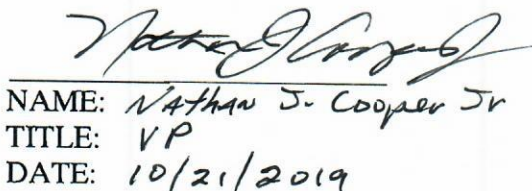 Nathan J Cooper Jr
NAME: Nathan J. Cooper Jr
TITLE: VP
DATE: 10/21/2019